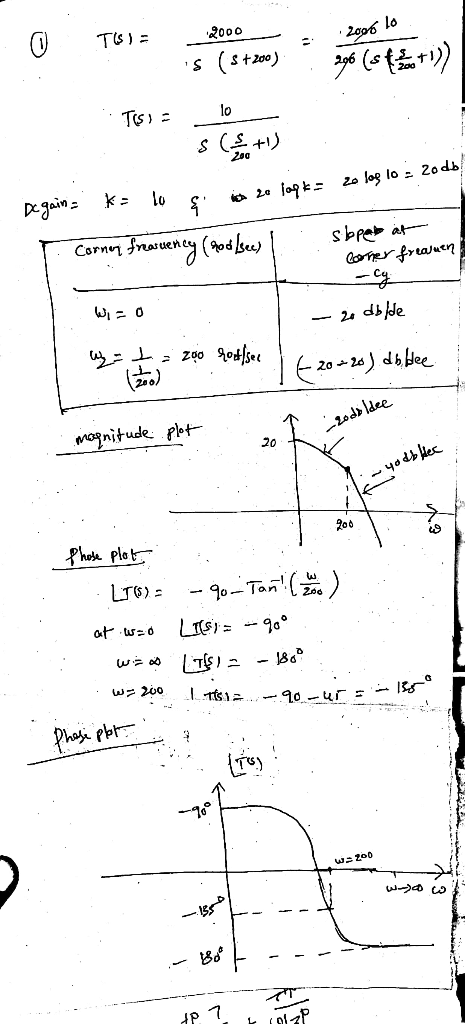 ① T(S) = 2000 / s (s+200) = 2000 10 / 200 (s (s/200 +1))
T(S) = 10 / s (s/200 +1)
Dc gain = K = 10 & 20 log k = 20 log 10 = 20 db
Corner freaquency (rod/sec)
slope at corner freaquen-cy
W1 = 0
- 20 db/de
W2 = 1/(1/200) = 200 rod/sec
(-20-20) db/dec
magnitude plot
20
-20db/dec
-40db/dec
200
ω
Phase plot
∠T(S) = -90 - Tan⁻¹ (w/200)
at w=0 ∠T(S) = -90°
w = ∞ ∠T(S) = -180°
w = 200 ∠T(S) = -90 - 45 = -135°
Phase plot
∠T(S)
-90°
w=200
w→∞ ω
-135°
-180°